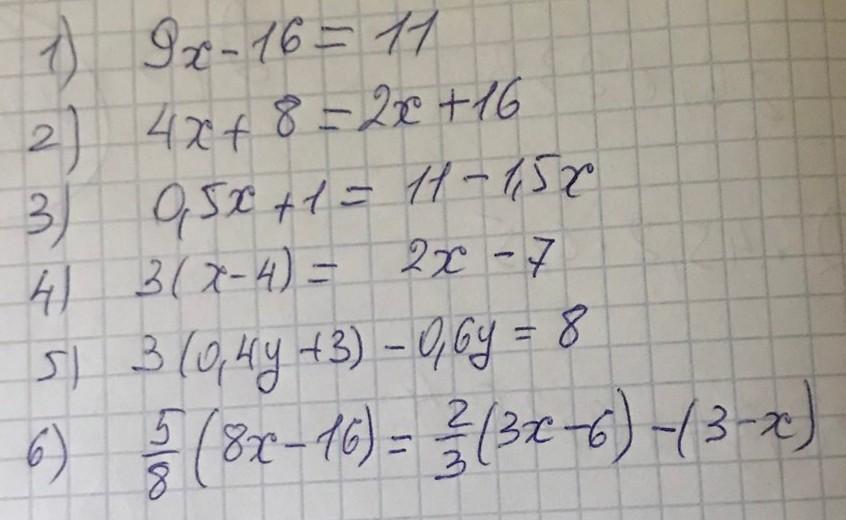 1) 9x - 16 = 11
2) 4x + 8 = 2x + 16
3) 0,5x + 1 = 11 - 1,5x
4) 3(x - 4) = 2x - 7
5) 3(0,4y + 3) - 0,6y = 8
6) 5/8 (8x - 16) = 2/3 (3x - 6) - (3 - x)